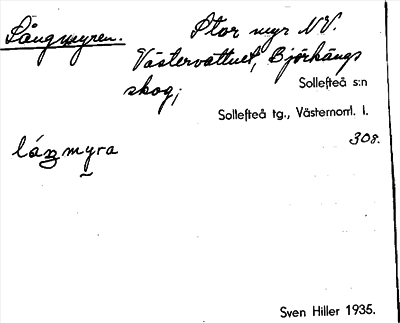 Långmyren. Stor myr NV.
Västervattnet, Björkängs
skog;
Sollefteå s:n
Sollefteå tg., Västernorrl. l.
låŋmyra 308.
Sven Hiller 1935.